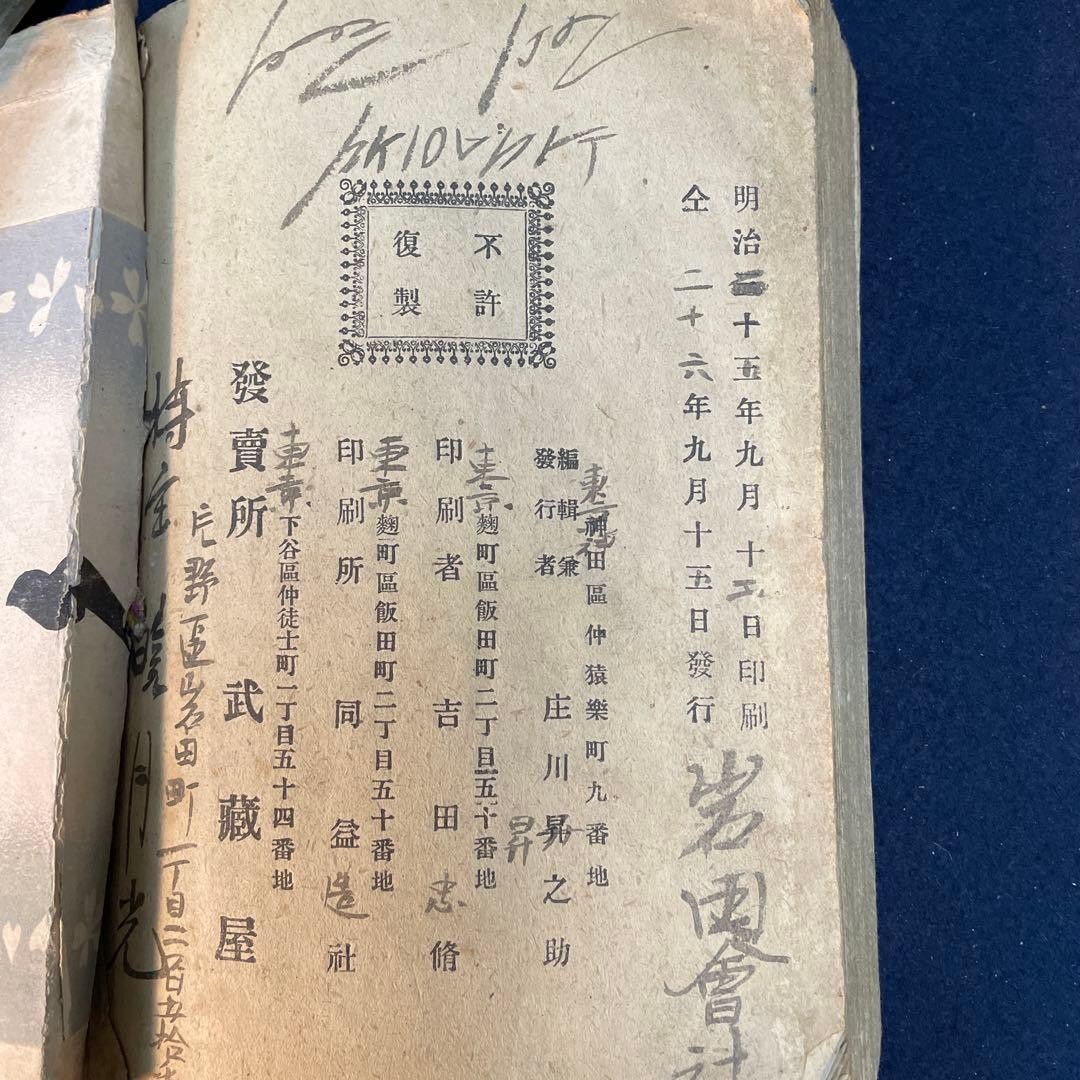 明治二十五年九月十五日印刷
仝二十六年九月十五日發行
岩田會社
不許
復製
東京神田區仲猿樂町九番地
編輯兼
發行者 庄川昇之助
昇
東京麴町區飯田町二丁目五十番地
印刷者 吉田忠脩
東京麴町區飯田町二丁目五十番地
印刷所 同益造社
東京下谷區仲徒士町一丁目五十四番地
發賣所 武藏屋
岩田町一丁目二百五拾
月光